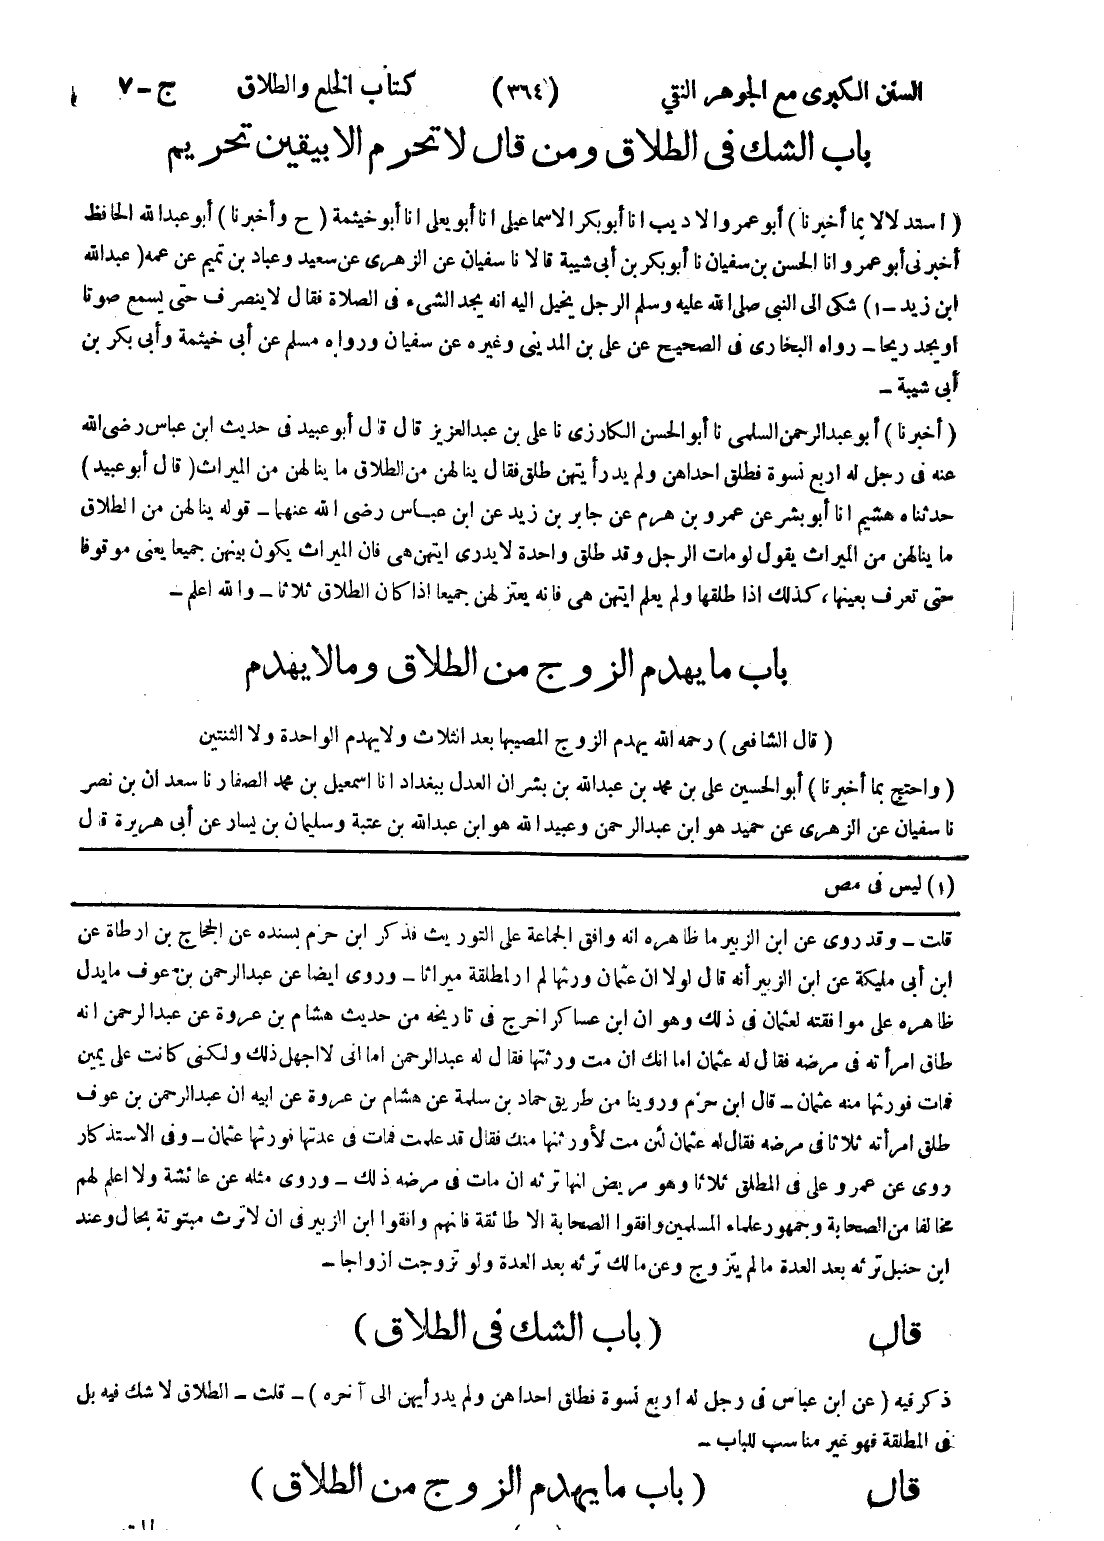 السنن الكبرى مع الجوهر النقي (٣٦٤) كتاب الخلع والطلاق ج-٧
باب الشك فى الطلاق ومن قال لا تحرم الا بيقين تحريم
(استدلالا بما أخبرنا) أبو عمرو الاديب انا أبو بكر الاسماعيلى انا أبو يعلى انا أبو خيثمة (ح وأخبرنا) أبو عبد الله الحافظ
أخبرنى أبو عمرو انا الحسن بن سفيان نا أبو بكر بن أبى شيبة قالا نا سفيان عن الزهرى عن سعيد وعباد بن تميم عن عمه (عبد الله
ابن زيد-١) شكى الى النبى صلى الله عليه وسلم الرجل يخيل اليه انه يجد الشىء فى الصلاة فقال لا ينصرف حتى يسمع صوتا
او يجد ريحا - رواه البخارى فى الصحيح عن على بن المدينى وغيره عن سفيان ورواه مسلم عن أبى خيثمة وأبى بكر بن
أبى شيبة -
(أخبرنا) أبو عبد الرحمن السلمى نا أبو الحسن الكارزى نا على بن عبد العزيز قال قال أبو عبيد فى حديث ابن عباس رضى الله
عنه فى رجل له اربع نسوة فطلق احداهن ولم يدر أيتهن طلق فقال ينالهن من الطلاق ما ينالهن من الميراث (قال أبو عبيد)
حدثناه هشيم انا أبو بشر عن عمرو بن هرم عن جابر بن زيد عن ابن عباس رضى الله عنهما - قوله ينالهن من الطلاق
ما ينالهن من الميراث يقول لو مات الرجل وقد طلق واحدة لا يدرى ايتهن هى فان الميراث يكون بينهن جميعا يعنى موقوفا
حتى تعرف بعينها، كذلك اذا طلقها ولم يعلم ايتهن هى فانه يعتزلهن جميعا اذا كان الطلاق ثلاثا - والله اعلم -
باب ما يهدم الزوج من الطلاق وما لا يهدم
(قال الشافعى) رحمه الله يهدم الزوج المصيبها بعد الثلاث ولا يهدم الواحدة ولا الثنتين
(واحتج بما أخبرنا) أبو الحسين على بن محمد بن عبد الله بن بشران العدل ببغداد انا اسمعيل بن محمد الصفار نا سعدان بن نصر
نا سفيان عن الزهرى عن حميد هو ابن عبد الرحمن وعبيد الله هو ابن عبد الله بن عتبة وسليمان بن يسار عن أبى هريرة قال
(١) ليس فى مص
قلت - وقد روى عن ابن الزبير ما ظاهره انه وافق الجماعة على التوريث فذكر ابن حزم بسنده عن الحجاج بن ارطاة عن
ابن أبى مليكة عن ابن الزبير أنه قال لولا ان عثمان ورثها لم ار لمطلقة ميراثا - وروى ايضا عن عبد الرحمن بن عوف ما يدل
ظاهره على موافقته لعثمان فى ذلك وهو ان ابن عساكر اخرج فى تاريخه من حديث هشام بن عروة عن عبد الرحمن انه
طلق امرأته فى مرضه فقال له عثمان اما انك ان مت ورثتها فقال له عبد الرحمن اما انى لا اجهل ذلك ولكنى كانت على يمين
فمات فورثها منه عثمان - قال ابن حزم وروينا من طريق حماد بن سلمة عن هشام بن عروة عن ابيه ان عبد الرحمن بن عوف
طلق امرأته ثلاثا فى مرضه فقال له عثمان لئن مت لأورثنها منك فقال قد علمت فمات فى عدتها فورثها عثمان - وفى الاستذكار
روى عن عمر وعلى فى المطلق ثلاثا وهو مريض انها ترثه ان مات فى مرضه ذلك - وروى مثله عن عائشة ولا اعلم لهم
مخالفا من الصحابة وجمهور علماء المسلمين وافقوا الصحابة الا طائفة فانهم وافقوا ابن الزبير فى ان لا ترث مبتوتة بحال وعند
ابن حنبل ترثه بعد العدة ما لم يتزوج وعن مالك ترثه بعد العدة ولو تزوجت ازواجا -
قال (باب الشك فى الطلاق)
ذكر فيه (عن ابن عباس فى رجل له اربع نسوة فطلق احداهن ولم يدر أيهن الى آخره) - قلت - الطلاق لا شك فيه بل
فى المطلقة فهو غير مناسب للباب -
قال (باب ما يهدم الزوج من الطلاق)